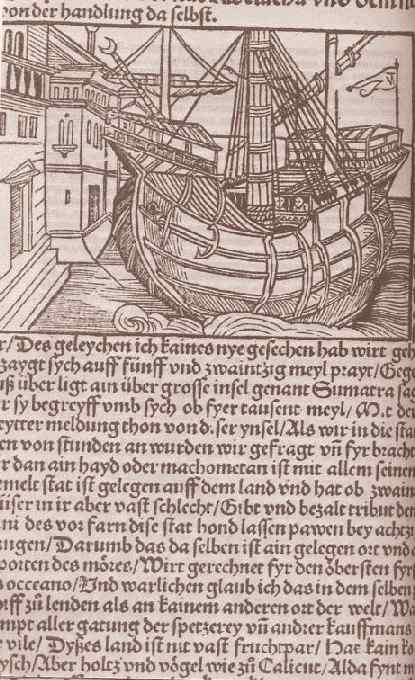 von der handlung da selbst.
r/Des geleychen ich kaines nye gesechen hab wirt geh
zaygt sych auff fünff vnd zwaintzig meyl prayt/Gege
uß über ligt ain über grosse insel genant Sumatra sa
r sy begreyff vmb sych ob fyer tausent meyl/
eytter meldung thon von diser ynsel/Als wir in die sta
en von stunden an wurden wir gefragt vñ fyr bracht
r dan ain hayd oder machometan ist mit allem seinen
emelt stat ist gelegen auff dem land vnd hat ob zwain
üser in ir aber vast schlecht/Gibt vnd bezalt tribut den
ni des vor farn dise stat hond lassen pawen bey achtzi
ungen/Darumb das da selben ist ain gelegen ort vnd
porten des möres/Wirt gerechnet fyr den öbersten fyr
s occeano/Vnd warlichen glaub ich das in dem selben
iff zů lenden als an kainem anderen ort der welt/Wa
mpt aller gatung der spetzerey vñ andrer kauffmans
r vile/Dyßes land ist nit vast fruchtpar/Hat kain ko
ysch/Aber holtz vnd vögel wie zů Calicut/Alda fynt m